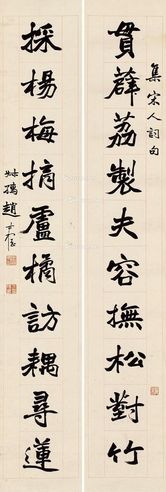 集宋人詞句
貫薜荔製夫容撫松對竹
採楊梅摘盧橘訪耦尋蓮
趙